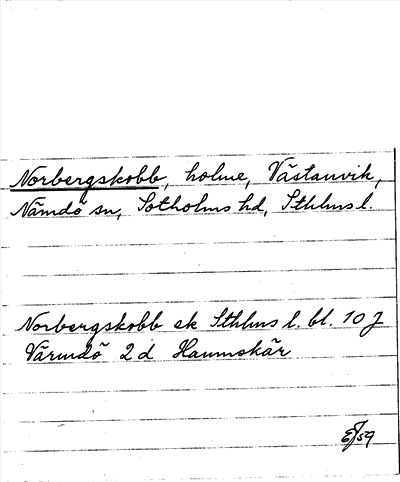 Norbergskobb, holme, Västanvik,
Nämdö sn, Sotholms hd, Sthlms l.
Norbergskobb ek Sthlms l. bl. 10 J
Värmdö 2 d Hamnskär